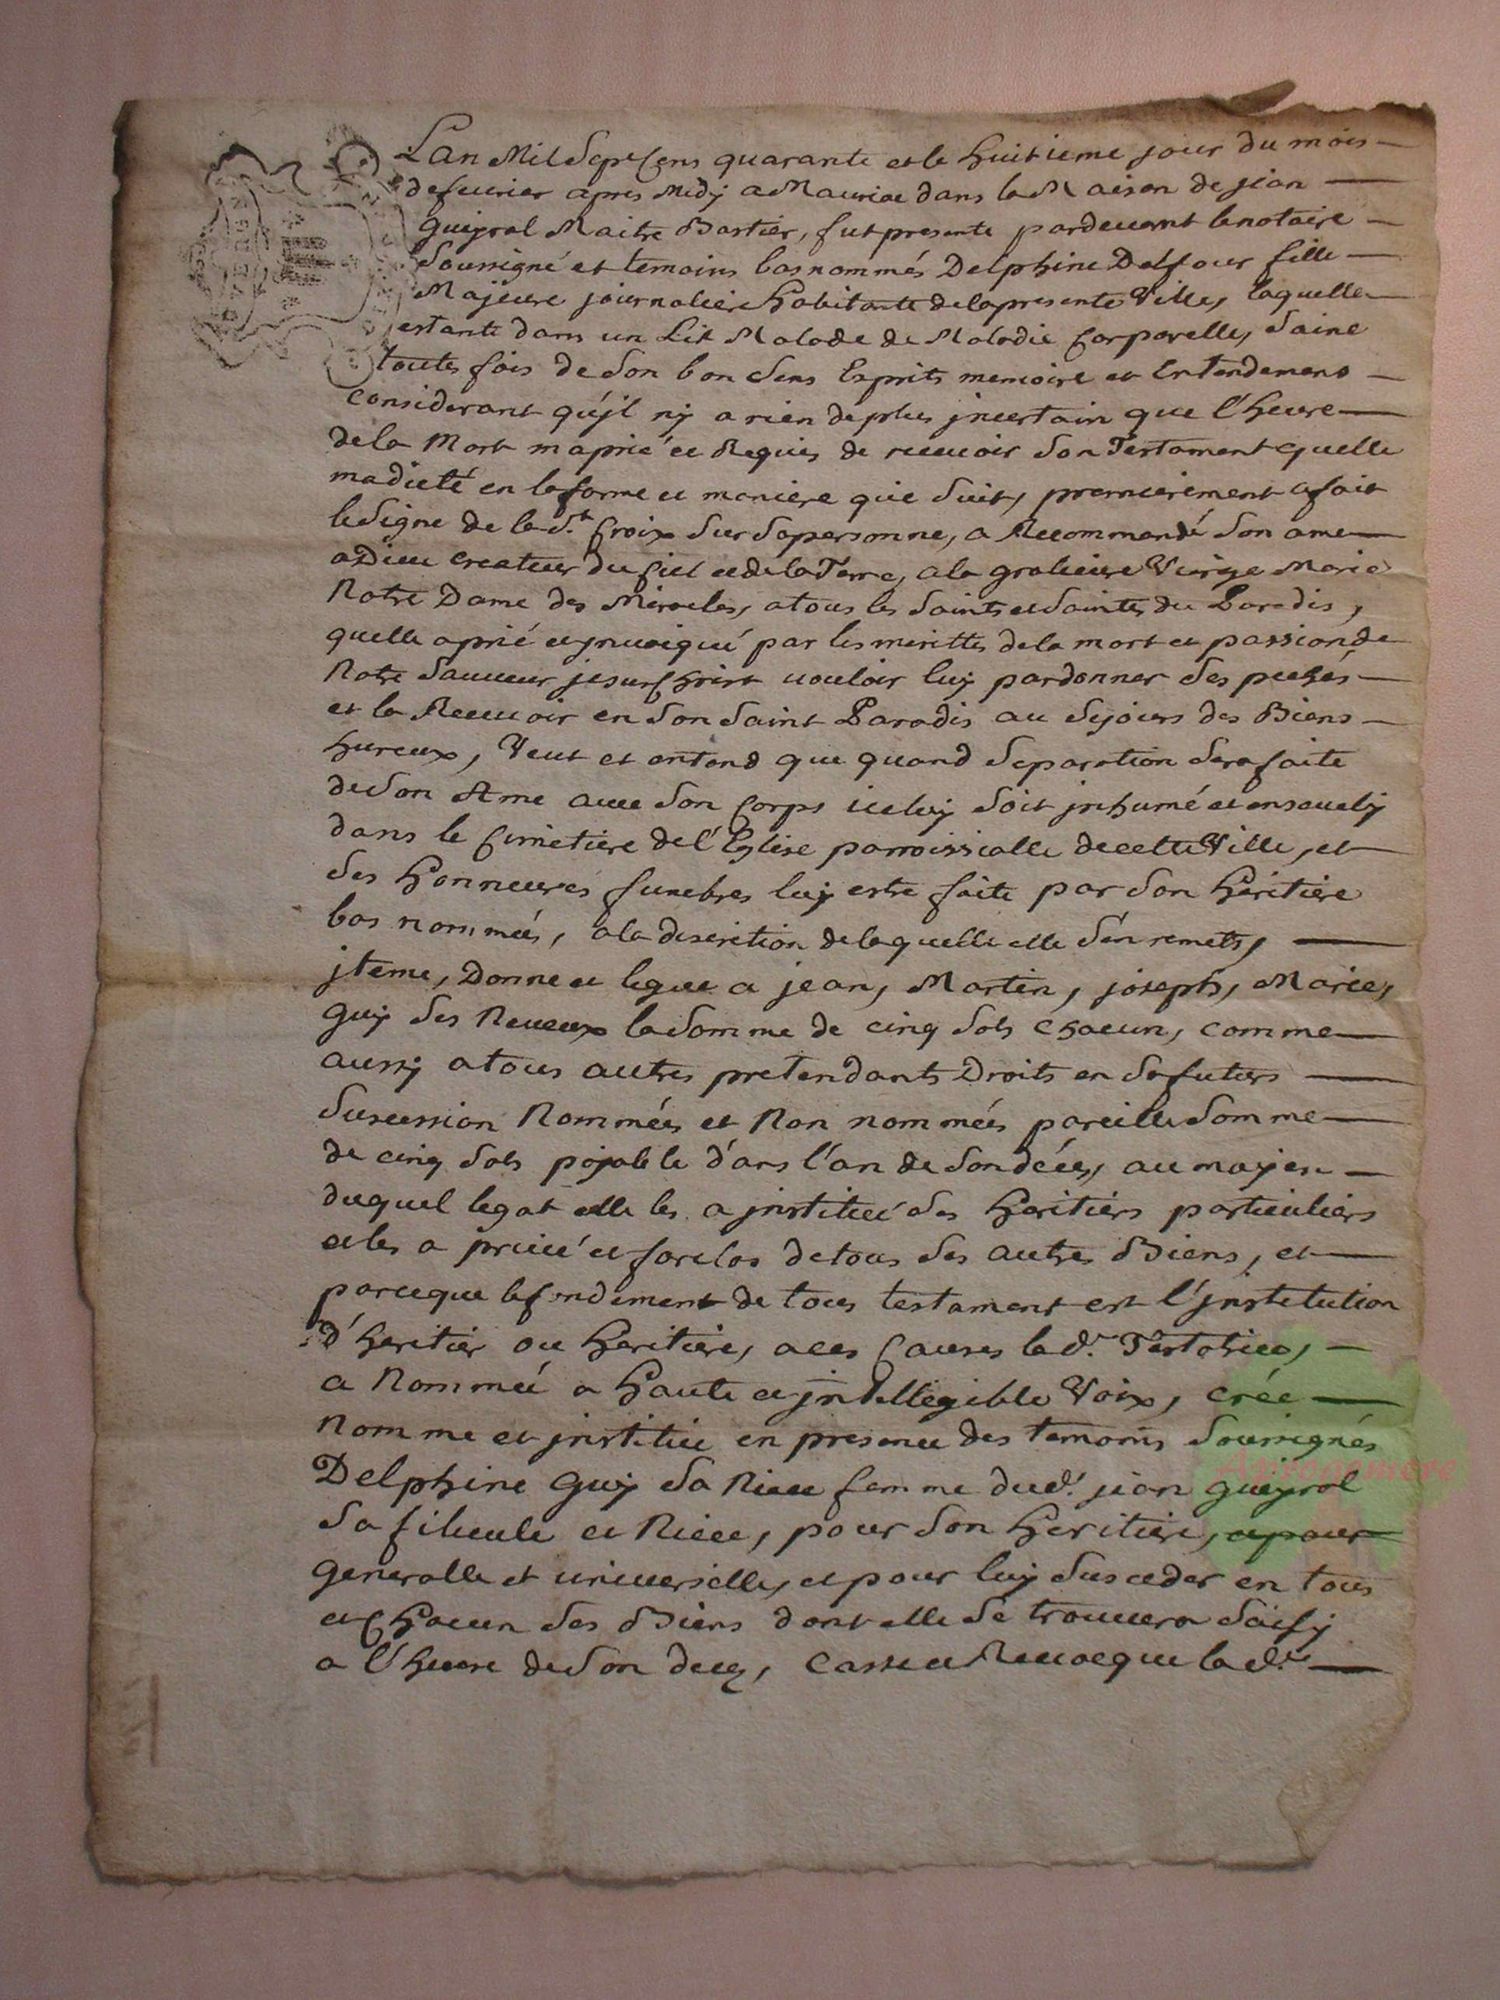 Lan Mil Sept Cens quarante et le huitieme jour du mois
de feurier apres Midy a Mauriac dans la Maison de jean
Gueyral Maitre Bastier, fut presente pardeuant le notaire
Soussigné et temoins bas nommés Delphine Delfour fille
Majeure journaliere habitante de la presente Ville, laquelle
estante dans un Lit Malade de Maladie Corporelle, Saine
toutes fois de Son bon Sens Esprits memoire et Entendemens
Considerant qu'jl ny a rien de plus jncertain que l'heure
de la Mort m a prié et Requis de receuoir Son Testament quelle
ma dicté en la forme et maniere que Suit, premierement a fait
le Signe de la Ste Croix Sur Sa personne, a Recommandé Son ame
a Dieu Createur du Ciel et de la Terre, a la glorieuse Vierge Marie
Notre Dame des Miracles, a tous les Saints et Saintes du Paradis,
quelle a prié et jnuoiqué par les merittes de la mort et passion de
Notre Sauueur jesus Christ uouloir luy pardonner Ses pechés
et la Receuoir en Son Saint Paradis au Sejours des Biens
hureux, Veut et entend que quand Separation Sera faite
de Son Ame auec Son Corps iceluy Soit jnhumé et enseuely
dans le Cimetiere de l'Eglise parroissialle de cette Ville, et
Ses honneures funebres luy estre faite par Son héritiere
bas nommée, a la discrition de laquelle elle S'en remets,
jteme, Donne et legue a jean, Martin, joseph, Marie,
Guy Ses Neueux la Somme de cinq Sols Chacun, comme
aussy a tous autres pretendants Droits en Sa futurs
Sucession Nommées et Non nommées pareille Somme
de cinq Sols pajable d'ans l'an de Son décés, au moyen
duquel legat elle les a jnstitué Ses heritiers particuliers
et les a priué et forclos de tous Ses autres Biens, et
parceque le fondement de tous testament est l'jnstitution
d'heritier ou heritiere, a ces Causes lad. Testatrice,
a Nommée a haute et jntellegible Voix, crée
Nomme et jnstitue en presence des temoins Soussignés
Delphine Guy Sa Niece femme dud. jean Gueyral
Sa filieule et Niece, pour Son heritiere, et pour
generalle et uniuerselle, et pour luy Susceder en tous
et Chacun Ses Biens dont elle Se trouuera Saisy
a l'heure de Son deces, Casse et Reuocque lad.